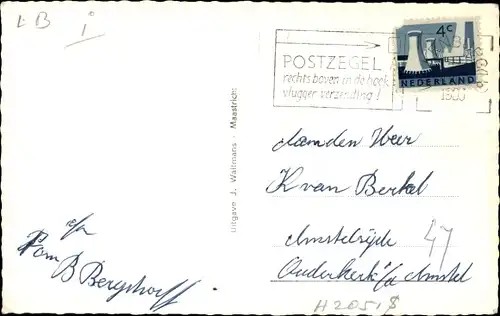 LB
i
POSTZEGEL
rechts boven in de hoek
vlugger verzending!
4c
NEDERLAND
Uitgave J. Waltmans - Maastricht
Aan den Heer
K van Berkel
Amstelzijde 47
Ouderkerk a/d Amstel
Fam
B Bergshoeff
H 2051 $